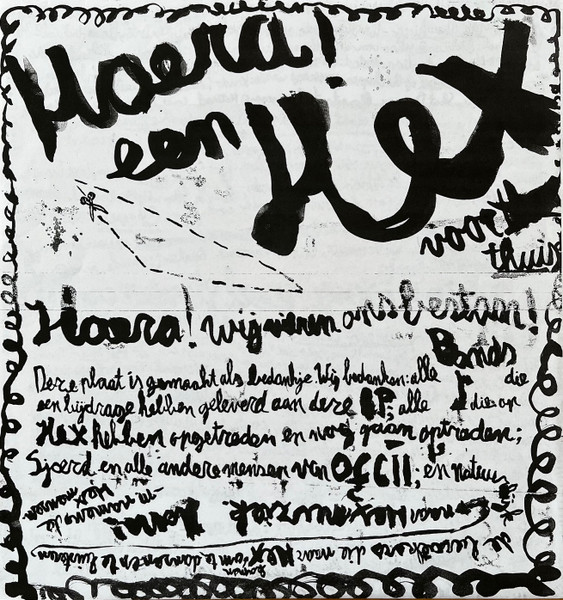 Hoera!
een Hex
voor
thuis
Hoera! wij vieren ons bestaan!
Deze plaat is gemaakt als bedankje. Wij bedanken: alle Bands die
een bijdrage hebben geleverd aan deze EP; alle die op
Hex hebben opgetreden en nog gaan optreden;
Sjoerd en alle andere mensen van OFCII; en natuurlijk
de bezoekers die naar Hex komen om te dansen en te luisteren
naar Hex muziek
namens de
Hexx mannen